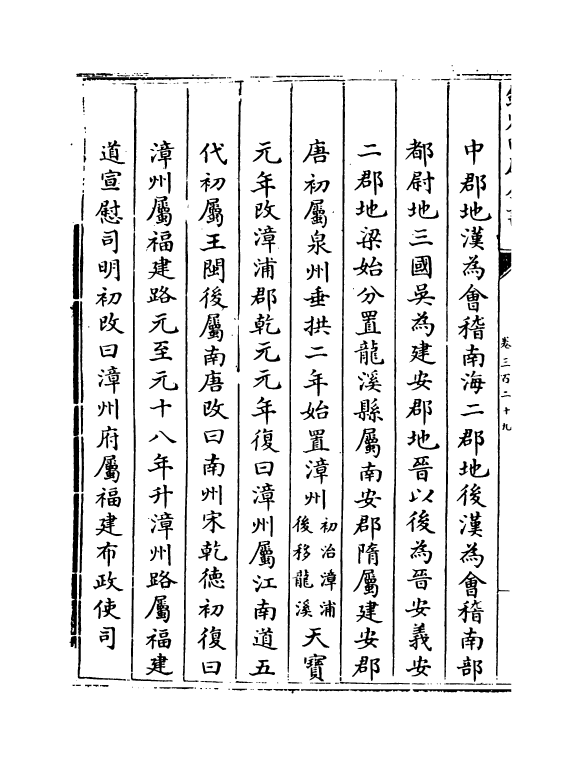 中郡地漢為會稽南海二郡地後漢為會稽南部
都尉地三國吳為建安郡地晉以後為晉安義安
二郡地梁始分置龍溪縣屬南安郡隋屬建安郡
唐初屬泉州垂拱二年始置漳州初治漳浦後移龍溪天寳
元年改漳浦郡乾元元年復曰漳州屬江南道五
代初屬王閩後屬南唐改曰南州宋乾德初復曰
漳州屬福建路元至元十八年升漳州路屬福建
道宣慰司明初改曰漳州府屬福建布政使司
卷三百二十九